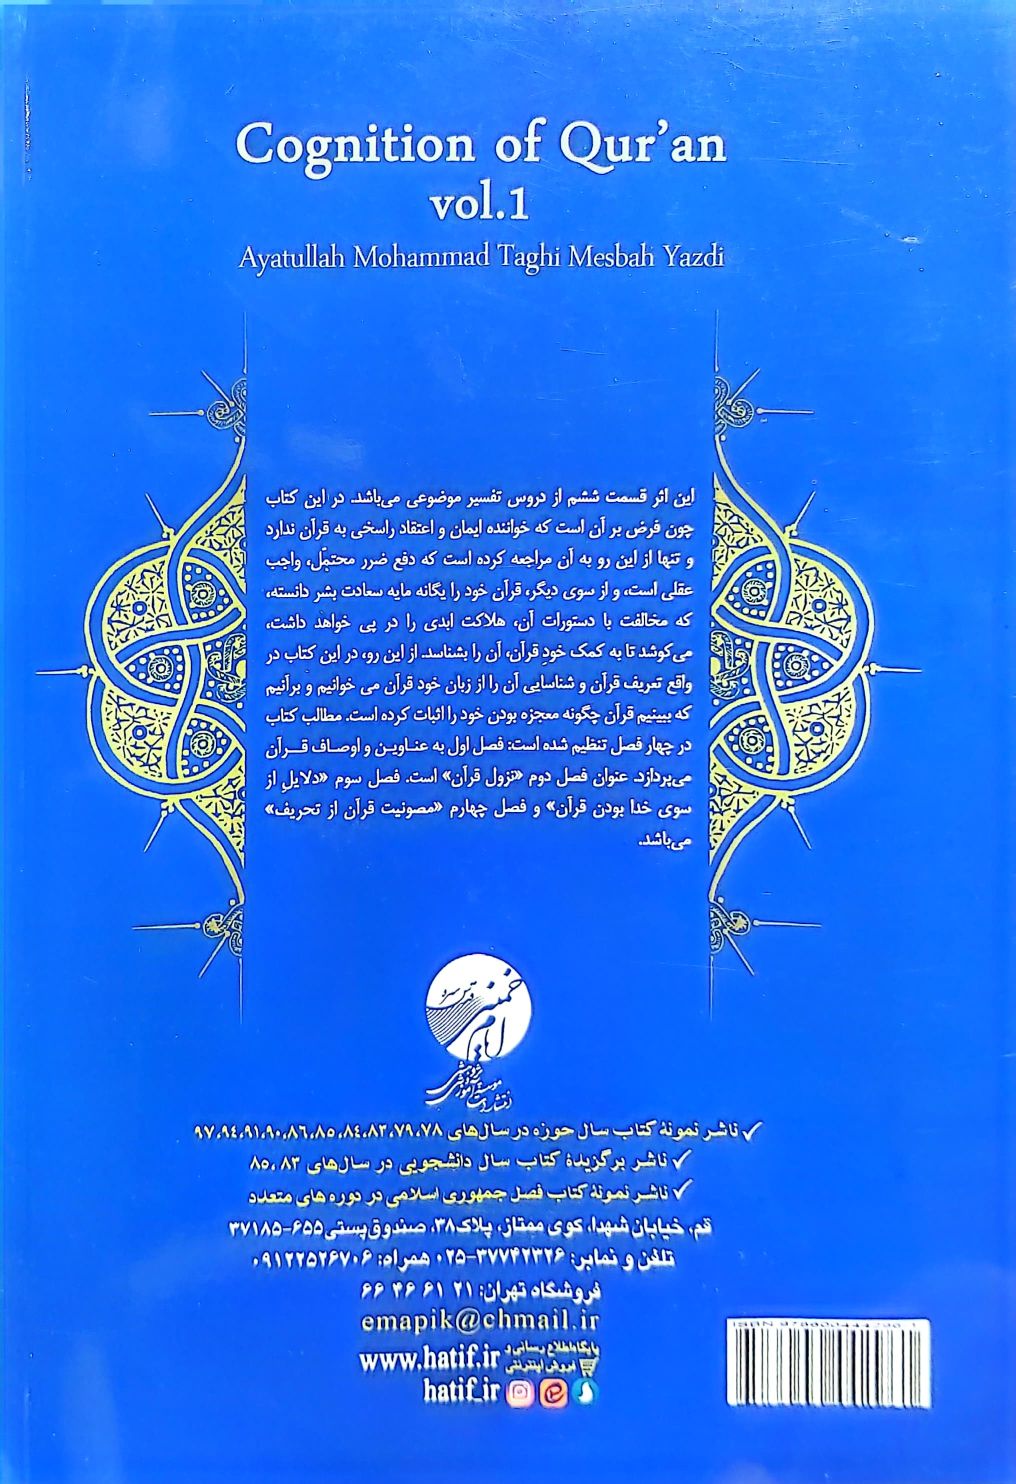 Cognition of Qur'an
vol.1
Ayatullah Mohammad Taghi Mesbah Yazdi
این اثر قسمت ششم از دروس تفسیر موضوعی می‌باشد. در این کتاب
چون فرض بر آن است که خواننده ایمان و اعتقاد راسخی به قرآن ندارد
و تنها از این رو به آن مراجعه کرده است که دفع ضرر محتمل، واجب
عقلی است، و از سوی دیگر، قرآن خود را یگانه مایه سعادت بشر دانسته،
که مخالفت با دستورات آن، هلاکت ابدی را در پی خواهد داشت،
می‌کوشد تا به کمک خودِ قرآن، آن را بشناسد. از این رو، در این کتاب در
واقع تعریف قرآن و شناسایی آن را از زبان خود قرآن می خوانیم و برآنیم
که ببینیم قرآن چگونه معجزه بودن خود را اثبات کرده است. مطالب کتاب
در چهار فصل تنظیم شده است: فصل اول به عناوین و اوصاف قرآن
می‌پردازد. عنوان فصل دوم «نزول قرآن» است. فصل سوم «دلایلِ از
سوی خدا بودن قرآن» و فصل چهارم «مصونیت قرآن از تحریف»
می‌باشد.
امام خمینی
قدس سره
انتشارات مؤسسه آموزشی و پژوهشی
✓ ناشر نمونهٔ کتاب سال حوزه در سال‌های ۷۸، ۷۹، ۸۳، ۸۴، ۸۵، ۸۶، ۹۰، ۹۱، ۹۴، ۹۷
✓ ناشر برگزیدهٔ کتاب سال دانشجویی در سال‌های ۸۳، ۸۵
✓ ناشر نمونهٔ کتاب فصل جمهوری اسلامی در دوره های متعدد
قم، خیابان شهدا، کوی ممتاز، پلاک۳۸، صندوق‌پستی۶۵۵-۳۷۱۸۵
تلفن و نمابر: ۳۷۷۴۲۳۲۶-۰۲۵ همراه: ۰۹۱۲۲۵۲۶۷۰۶
فروشگاه تهران: ۲۱ ۶۱ ۴۶ ۶۶
emapik@chmail.ir
پایگاه اطلاع رسانی و
فروش اینترنتی
www.hatif.ir
hatif_ir